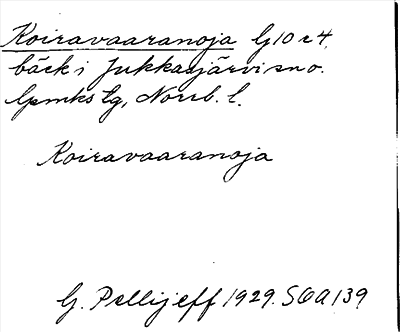 Koiravaaranoja G10 r 4.
bäck i Jukkasjärvi sn o.
lpmks tg, Norrb. l.
Koiravaaranoja
G. Pellijeff 1929. SOA 139